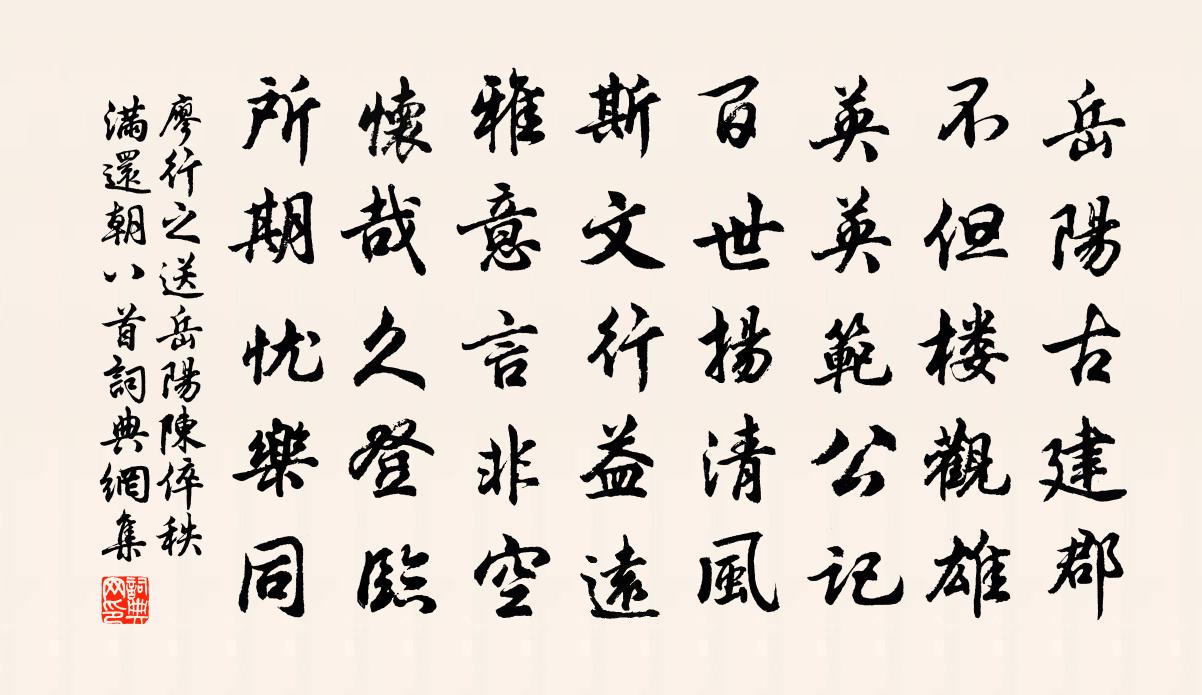 岳陽古建郡
不但楼觀雄
英英範公記
百世揚清風
斯文行益遠
雅意言非空
懷哉久登臨
所期忧樂同
廖行之送岳陽陳倅秩
滿還朝八首詞典網集
詞典网印